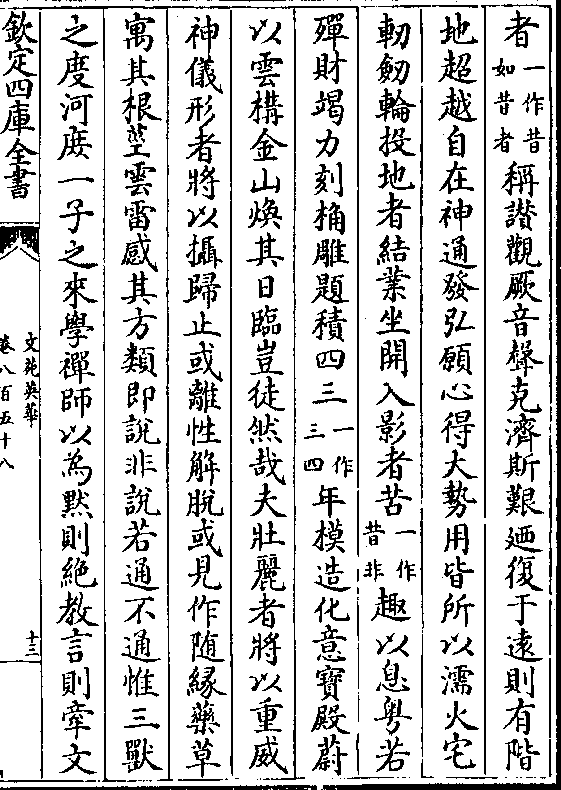 者一作昔如昔者稱讃觀厥音聲克濟斯艱廼復于遠則有階
地超越自在神通發弘願心得大勢用皆所以濡火宅
軔劒輪投地者結業坐開入影者苦一作昔非趣以息粤若
殫財竭力刻桷雕題積四三一作三四年模造化意寶殿蔚
以雲構金山煥其日臨豈徒然哉夫壯麗者將以重威
神儀形者將以攝歸止或離性解脫或見作随緣藥草
寓其根莖雲雷感其方類即說非說若通不通惟三獸
之度河庻一子之來學禪師以為黙則絶教言則牽文
欽定四庫全書
文苑英華
卷八百五十八
十三